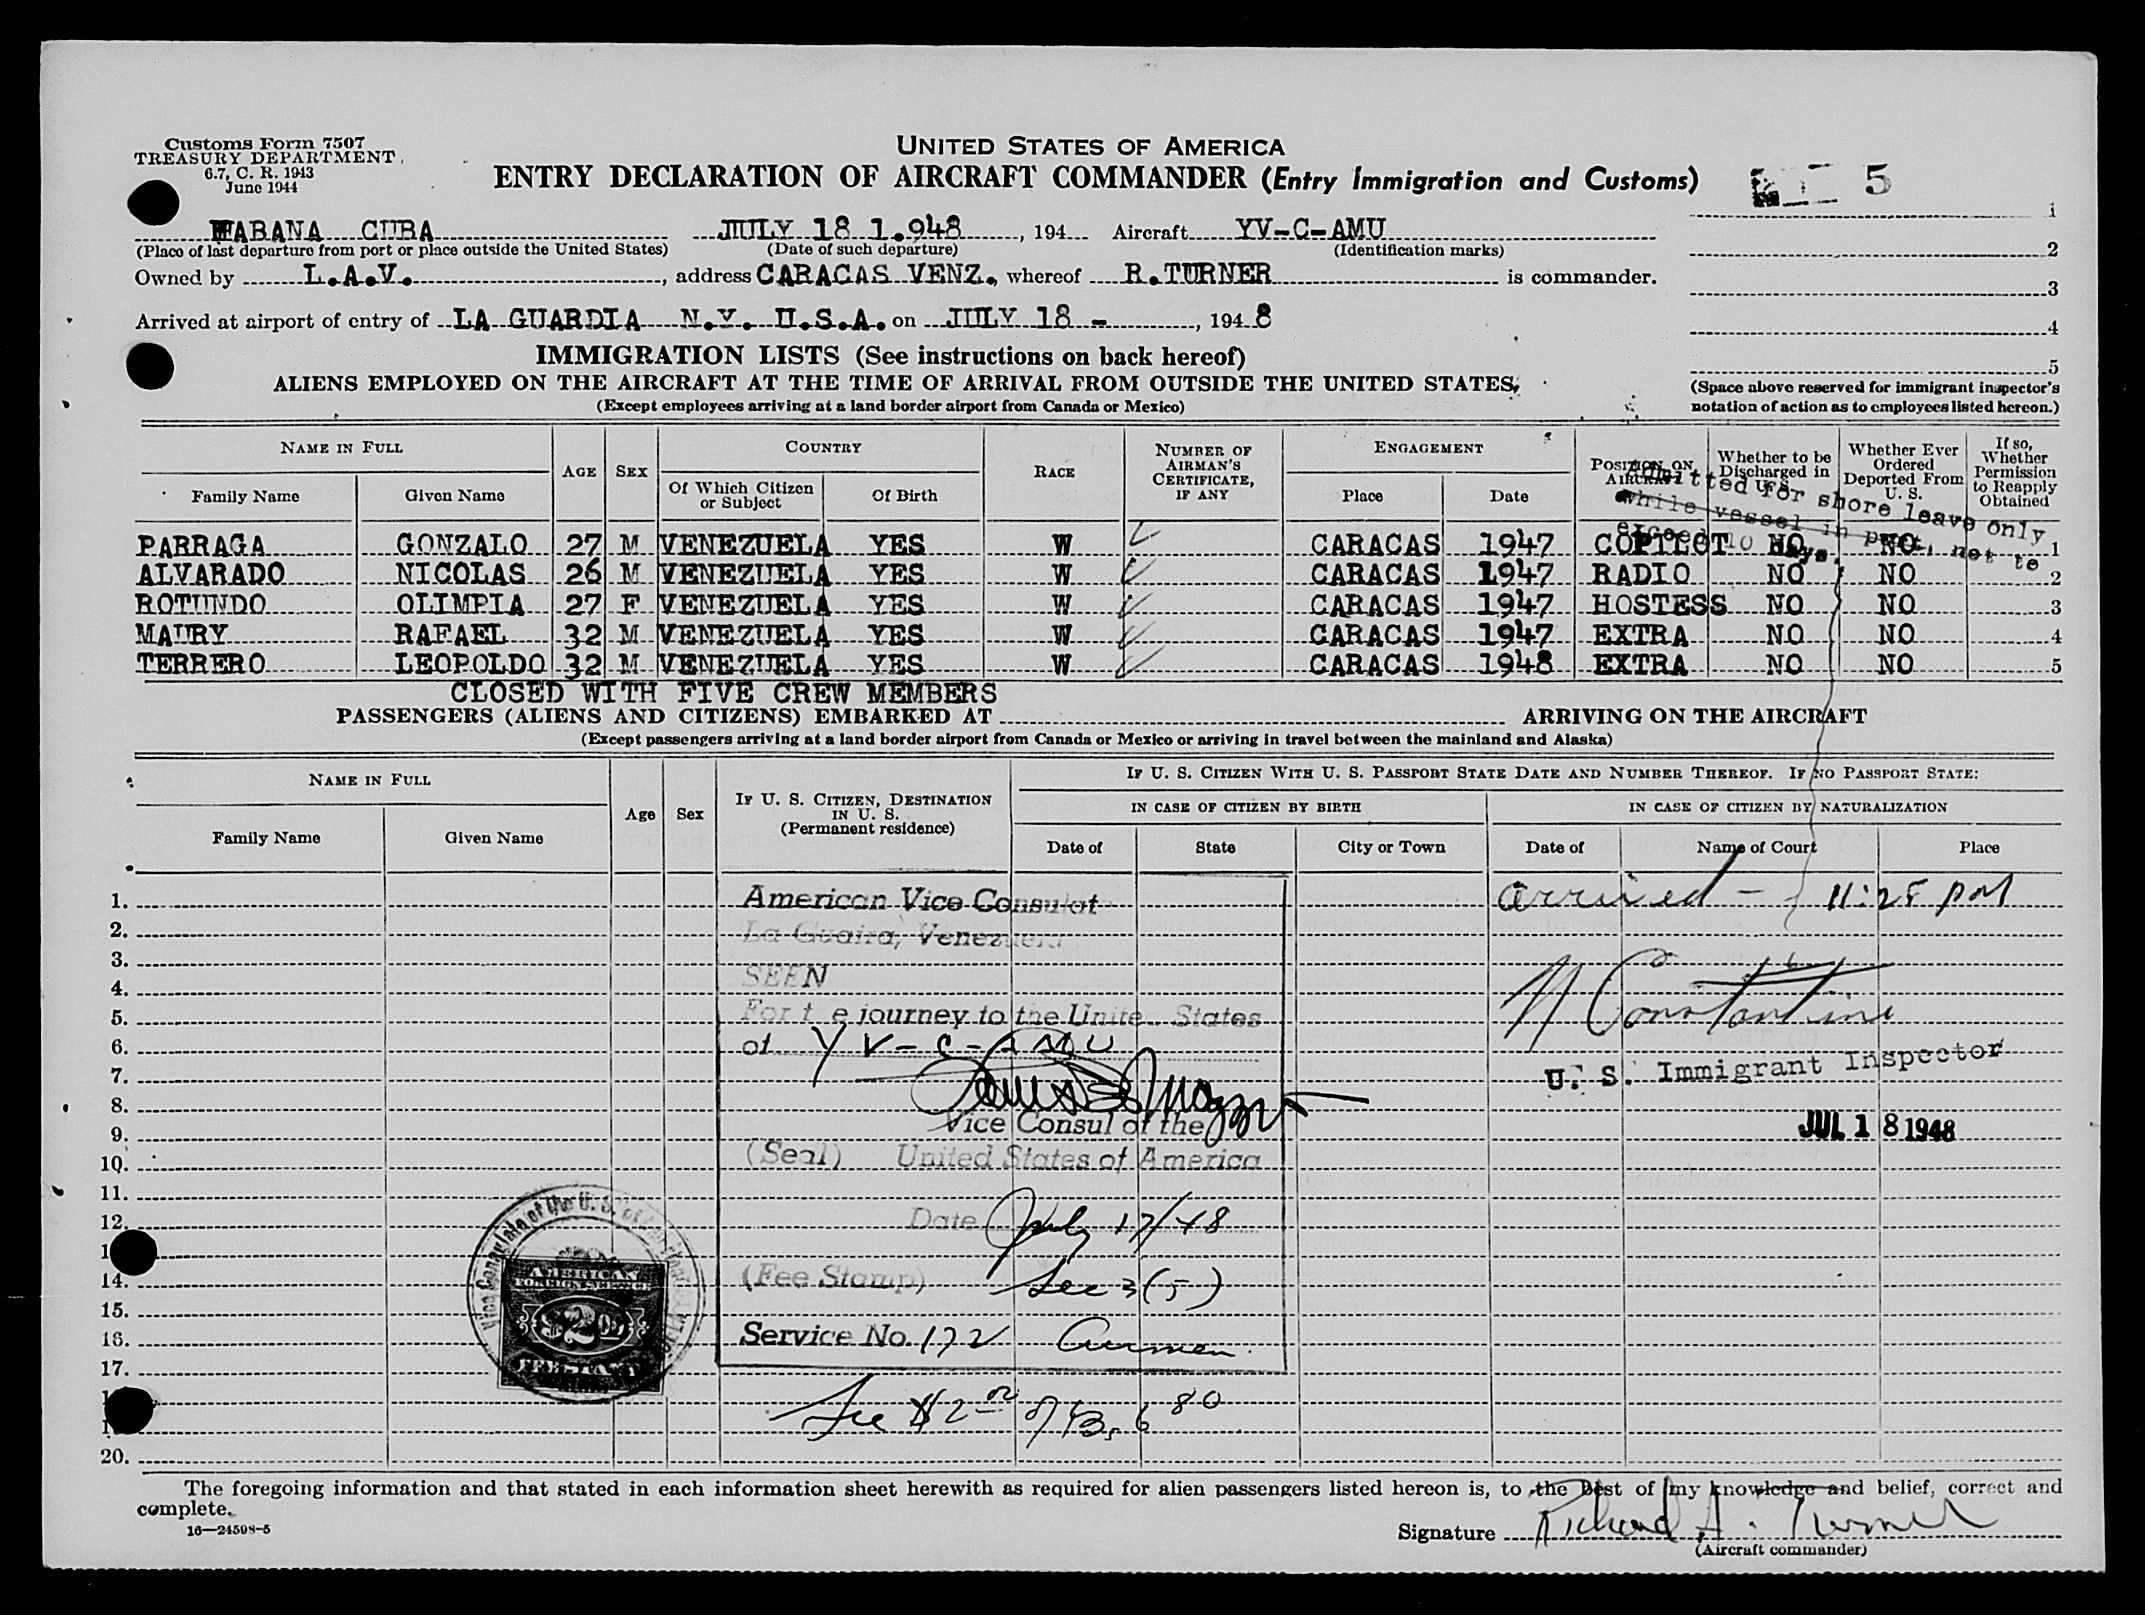 Customs Form 7507
TREASURY DEPARTMENT
6.7, C. R. 1943
June 1944
UNITED STATES OF AMERICA
ENTRY DECLARATION OF AIRCRAFT COMMANDER (Entry Immigration and Customs)
5
HABANA CUBA JULY 18 1.948, 194 Aircraft YV-C-AMU
(Place of last departure from port or place outside the United States) (Date of such departure) (Identification marks)
Owned by L.A.V., address CARACAS VENZ., whereof R.TURNER is commander.
Arrived at airport of entry of LA GUARDIA N.Y. U.S.A. on JULY 18 -, 194 8
1
2
3
4
5
(Space above reserved for immigrant inspector's
notation of action as to employees listed hereon.)
IMMIGRATION LISTS (See instructions on back hereof)
ALIENS EMPLOYED ON THE AIRCRAFT AT THE TIME OF ARRIVAL FROM OUTSIDE THE UNITED STATES,
(Except employees arriving at a land border airport from Canada or Mexico)
NAME IN FULL AGE SEX COUNTRY RACE NUMBER OF AIRMAN'S CERTIFICATE, IF ANY ENGAGEMENT POSITION ON AIRCRAFT Whether to be Discharged in U.S. Whether Ever Ordered Deported From U. S. If so, Whether Permission to Reapply Obtained
Family Name Given Name Of Which Citizen or Subject Of Birth Place Date
Admitted for shore leave only
while vessel in port, not to
exceed 10 days.
PARRAGA GONZALO 27 M VENEZUELA YES W CARACAS 1947 COPILOT NO NO 1
ALVARADO NICOLAS 26 M VENEZUELA YES W CARACAS 1947 RADIO NO NO 2
ROTUNDO OLIMPIA 27 F VENEZUELA YES W CARACAS 1947 HOSTESS NO NO 3
MAURY RAFAEL 32 M VENEZUELA YES W CARACAS 1947 EXTRA NO NO 4
TERRERO LEOPOLDO 32 M VENEZUELA YES W CARACAS 1948 EXTRA NO NO 5
CLOSED WITH FIVE CREW MEMBERS
PASSENGERS (ALIENS AND CITIZENS) EMBARKED AT ARRIVING ON THE AIRCRAFT
(Except passengers arriving at a land border airport from Canada or Mexico or arriving in travel between the mainland and Alaska)
NAME IN FULL Age Sex IF U. S. CITIZEN, DESTINATION IN U. S. (Permanent residence) IF U. S. CITIZEN WITH U. S. PASSPORT STATE DATE AND NUMBER THEREOF. IF NO PASSPORT STATE:
IN CASE OF CITIZEN BY BIRTH IN CASE OF CITIZEN BY NATURALIZATION
Family Name Given Name Date of State City or Town Date of Name of Court Place
1. American Vice Consulat arrived - 11:25 PM
2. La Guaira, Venezuela
3.
SEEN
4. N Constantine
5. For t e journey to the Unite States
6. of YV-C-AMU
7. U. S. Immigrant Inspector
8.
Vice Consul of the
9. JUL 18 1948
10. (Seal) United States of America
11.
12. Date July 17/48
1
14. (Fee Stamp) Sec 3(5)
15.
16. Service No. 172 Airmen
17.
1
Fee $2.00 Bs 6 80
1
20.
Vice Consulate of the U. S. of
AMERICAN
FOREIGN SERVICE
$2.00
FEE STAMP
The foregoing information and that stated in each information sheet herewith as required for alien passengers listed hereon is, to the best of my knowledge and belief, correct and
complete.
16—24598-5
Signature Richard A. Turner
(Aircraft commander)